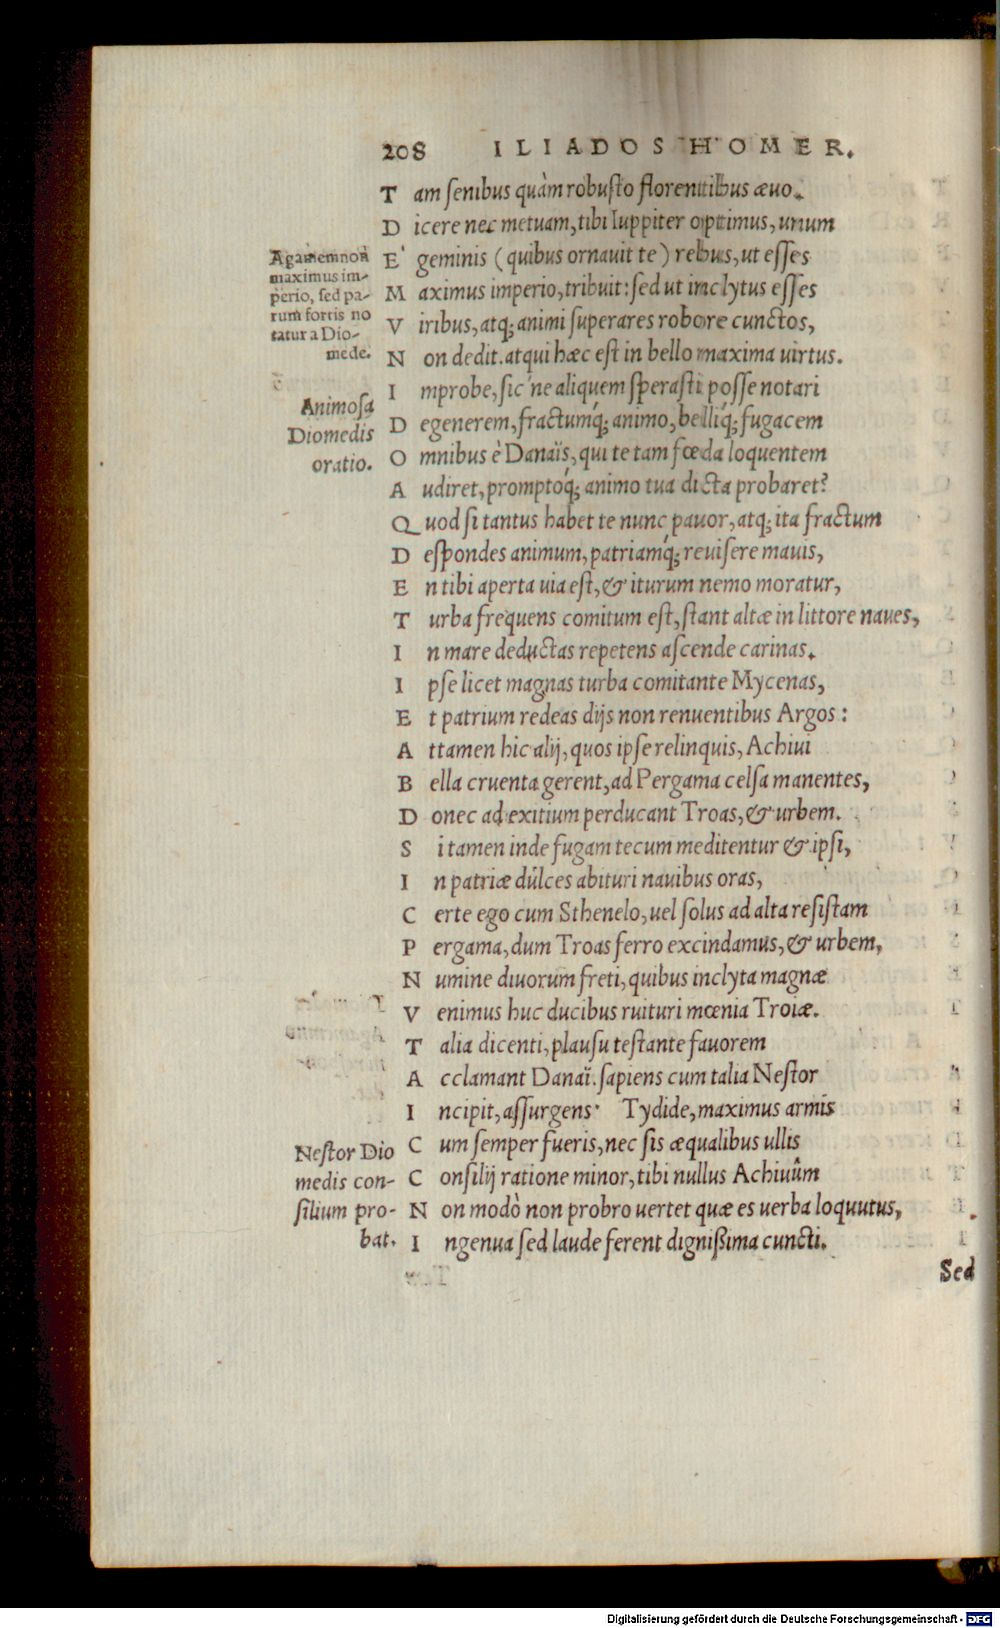 208 ILIADOS HOMER.
Tam senibus quàm robusto florentibus æuo.
Dicere nec metuam, tibi Iuppiter optimus, unum
E' geminis (quibus ornauit te) rebus, ut esses
Maximus imperio, tribuit: sed ut inclytus esses
Viribus, atq; animi superares robore cunctos,
Non dedit. atqui hæc est in bello maxima uirtus.
Improbe, sic 'ne aliquem sperasti posse notari
Degenerem, fractumq́; animo, belliq́; fugacem
Omnibus è Danaïs, qui te tam fœda loquentem
Audiret, promptoq́; animo tua dicta probaret?
Quod si tantus habet te nunc pauor, atq; ita fractum
Despondes animum, patriamq́; reuisere mauis,
En tibi aperta uia est, & iturum nemo moratur,
Turba frequens comitum est, stant altæ in littore naues,
In mare deductas repetens ascende carinas.
Ipse licet magnas turba comitante Mycenas,
Et patrium redeas dijs non renuentibus Argos:
Attamen hic alij, quos ipse relinquis, Achiui
Bella cruenta gerent, ad Pergama celsa manentes,
Donec ad exitium perducant Troas, & urbem.
Si tamen inde fugam tecum meditentur & ipsi,
In patriæ dulces abituri nauibus oras,
Certe ego cum Sthenelo, uel solus ad alta resistam
Pergama, dum Troas ferro excindamus, & urbem,
Numine diuorum freti, quibus inclyta magnæ
Venimus huc ducibus ruituri mœnia Troiæ.
Talia dicenti, plausu testante fauorem
Acclamant Danaï. sapiens cum talia Nestor
Incipit, assurgens· Tydide, maximus armis
Cum semper fueris, nec sis æqualibus ullis
Consilij ratione minor, tibi nullus Achiuûm
Non modò non probro uertet quæ es uerba loquutus,
Ingenua sed laude ferent dignißima cuncti.
Sed
Agamemnon
maximus im-
perio, sed pa-
rum fortis no
tatur a Dio-
mede.
Animosa
Diomedis
oratio.
Nestor Dio
medis con-
silium pro-
bat.
Digitalisierung gefördert durch die Deutsche Forschungsgemeinschaft - DFG